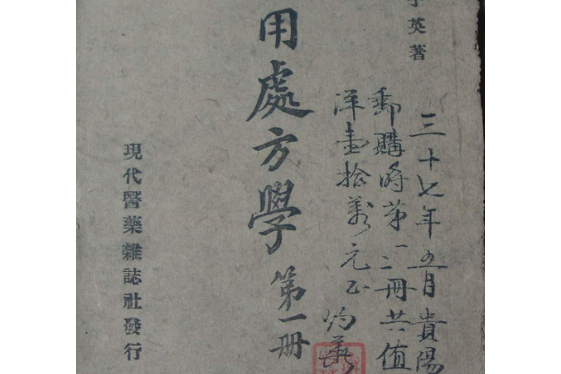 英著
用處方學
第一册
現代醫藥雜誌社發行
三十七年五月貴陽
郵購時第一二册共值
洋壹拾萬元正